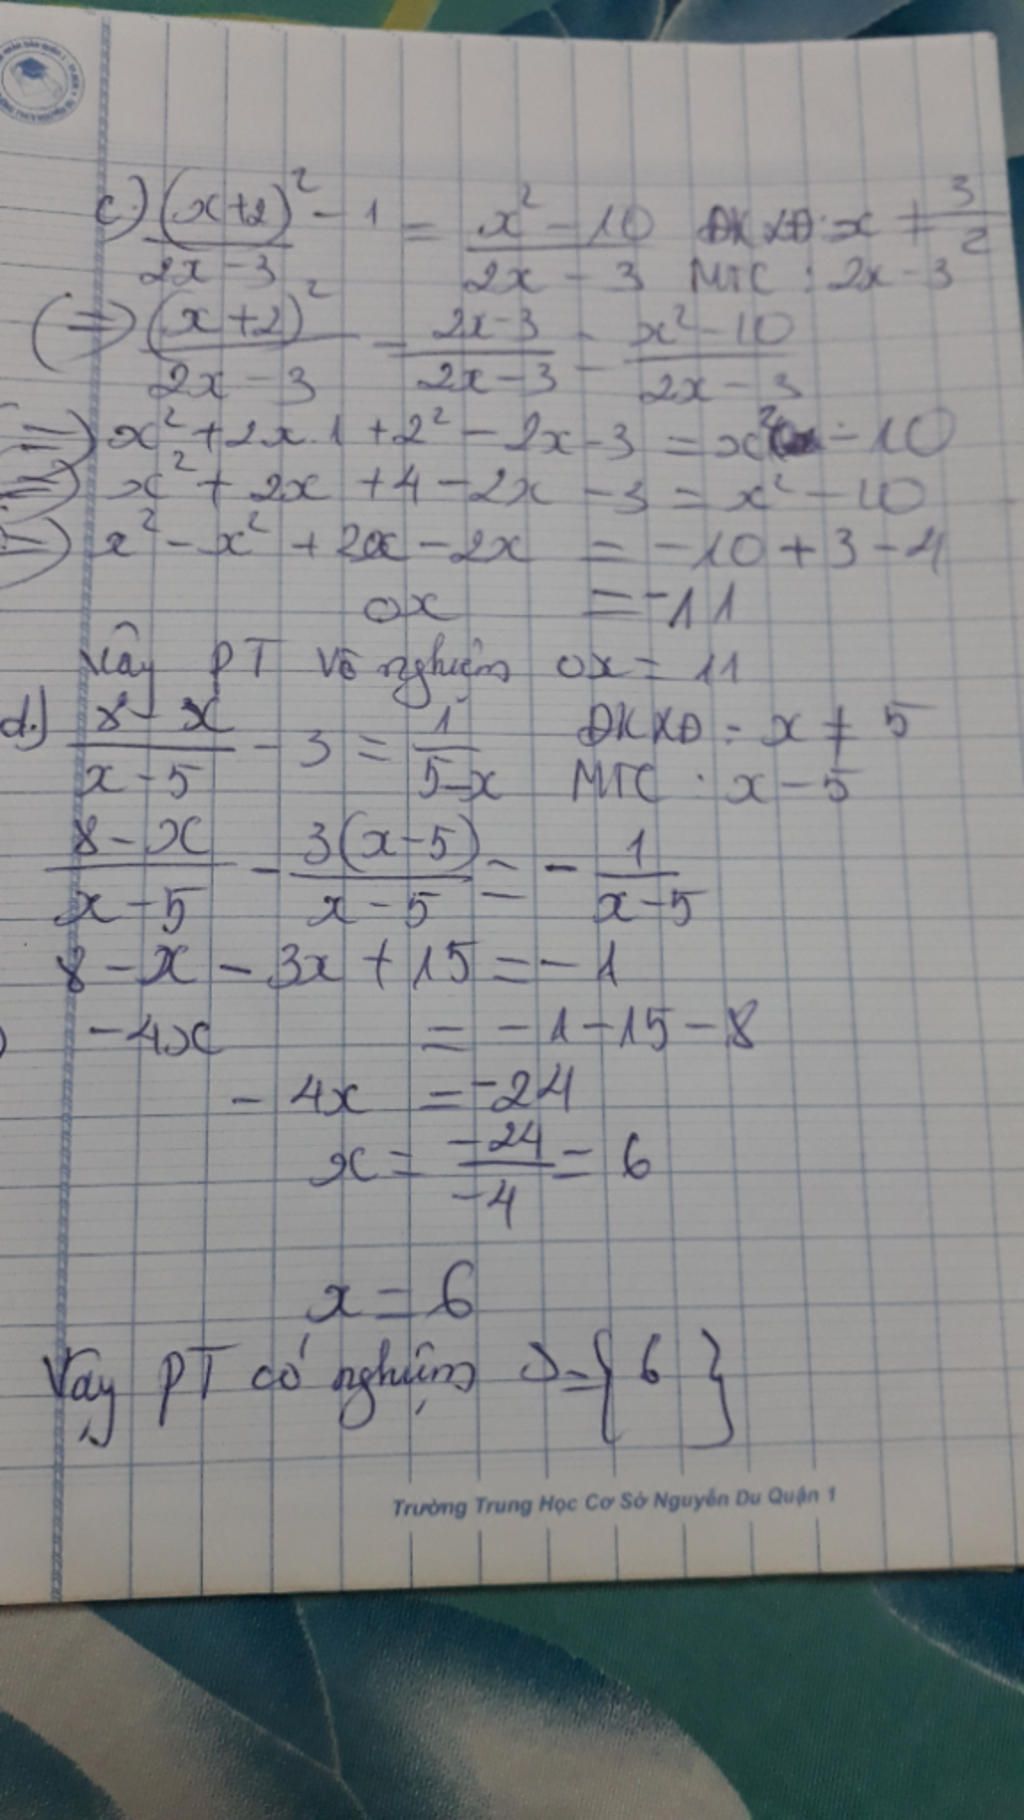 c.) (x+2)² / 2x-3 - 1 = x² - 10 / 2x - 3 ĐKXĐ: x ≠ 3/2
MTC : 2x - 3
(=) (x+2)² / 2x - 3 - 2x-3 / 2x-3 = x² - 10 / 2x - 3
(=) x² + 2x.1 + 2² - 2x - 3 = x² - 10
(=) x² + 2x + 4 - 2x - 3 = x² - 10
(=) x² - x² + 2x - 2x = -10 + 3 - 4
0x = -11
Vậy PT vô nghiệm 0x = 11
d.) 8 - x / x - 5 - 3 = 1 / 5-x ĐKXĐ : x ≠ 5
MTC : x - 5
8 - x / x - 5 - 3(x-5) / x - 5 = - 1 / x-5
8 - x - 3x + 15 = - 1
- 4x = - 1 - 15 - 8
- 4x = -24
x = -24 / -4 = 6
x = 6
Vậy PT có nghiệm S = { 6 }
Trường Trung Học Cơ Sở Nguyễn Du Quận 1